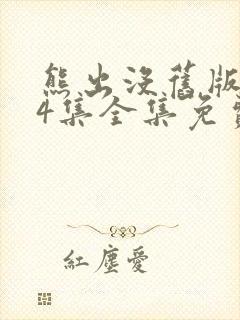 熊出没舊版
4集全集免費
紅塵愛